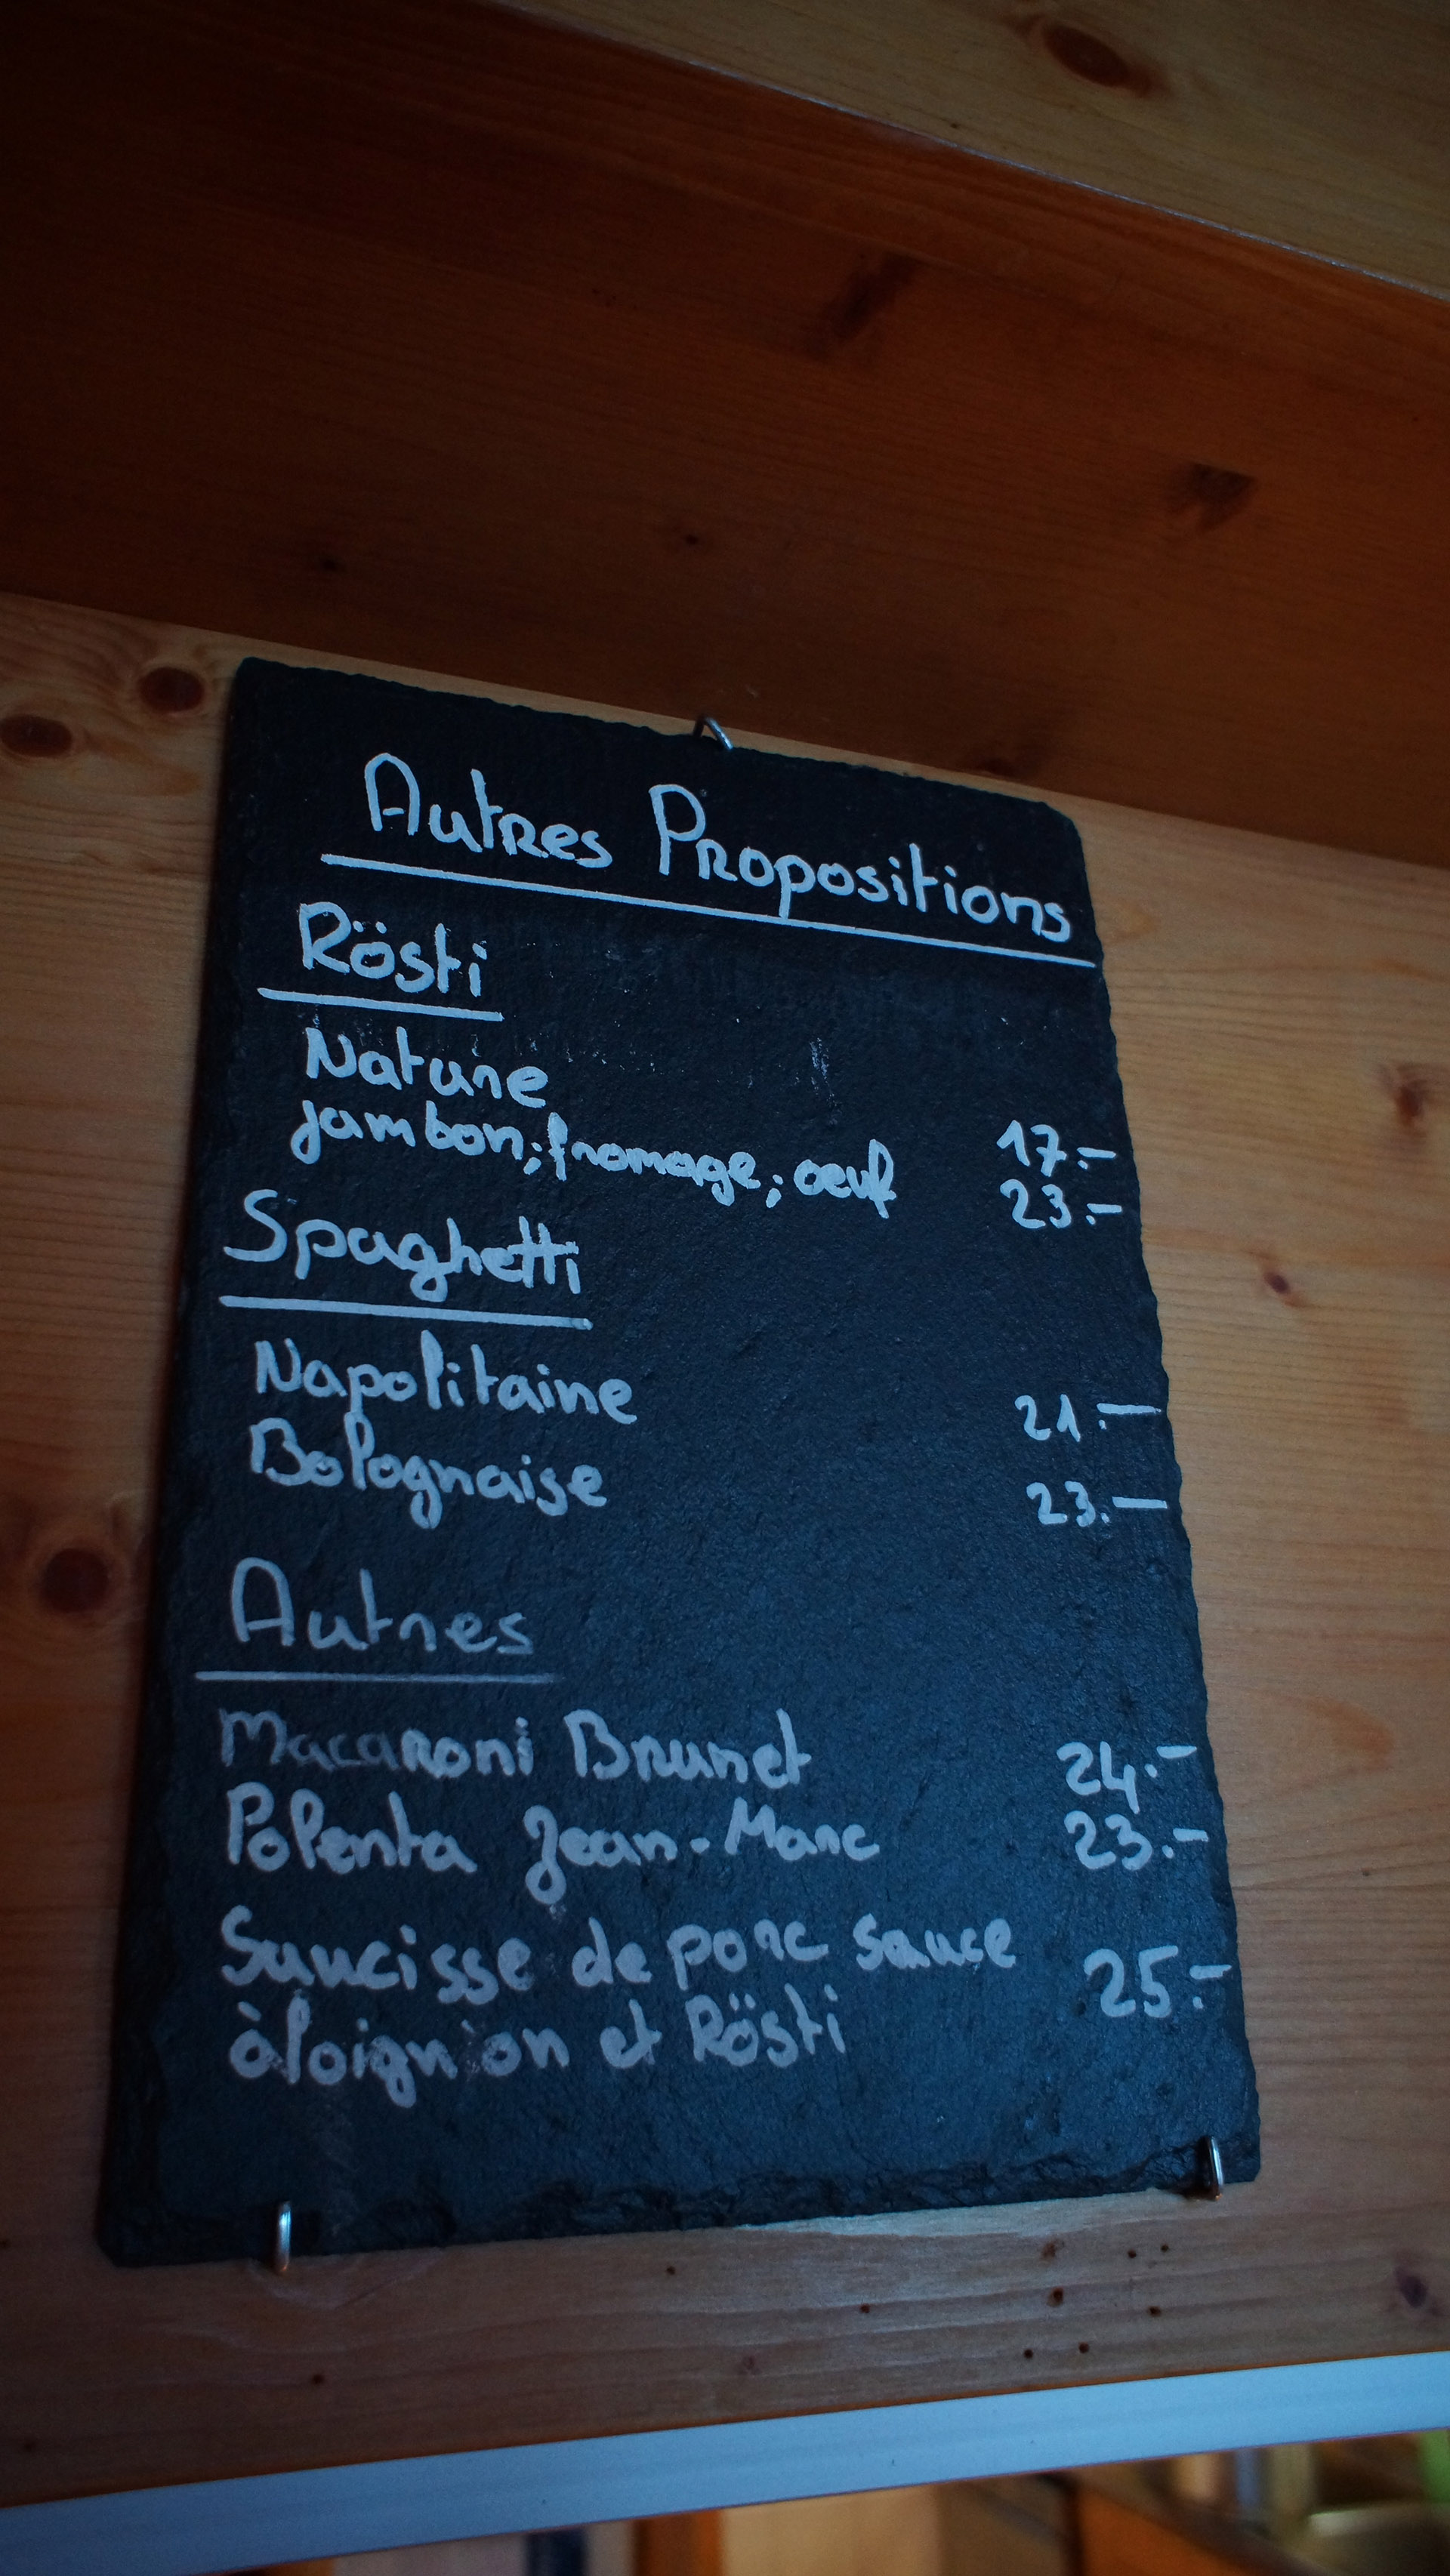 Autres Propositions
Rösti
Nature 17.-
jambon; fromage; oeuf 23.-
Spaghetti
Napolitaine 21.-
Bolognaise 23.-
Autres
Macaroni Brunet 24.-
Polenta Jean-Marc 23.-
Saucisse de porc sauce 25.-
àloignion et Rösti